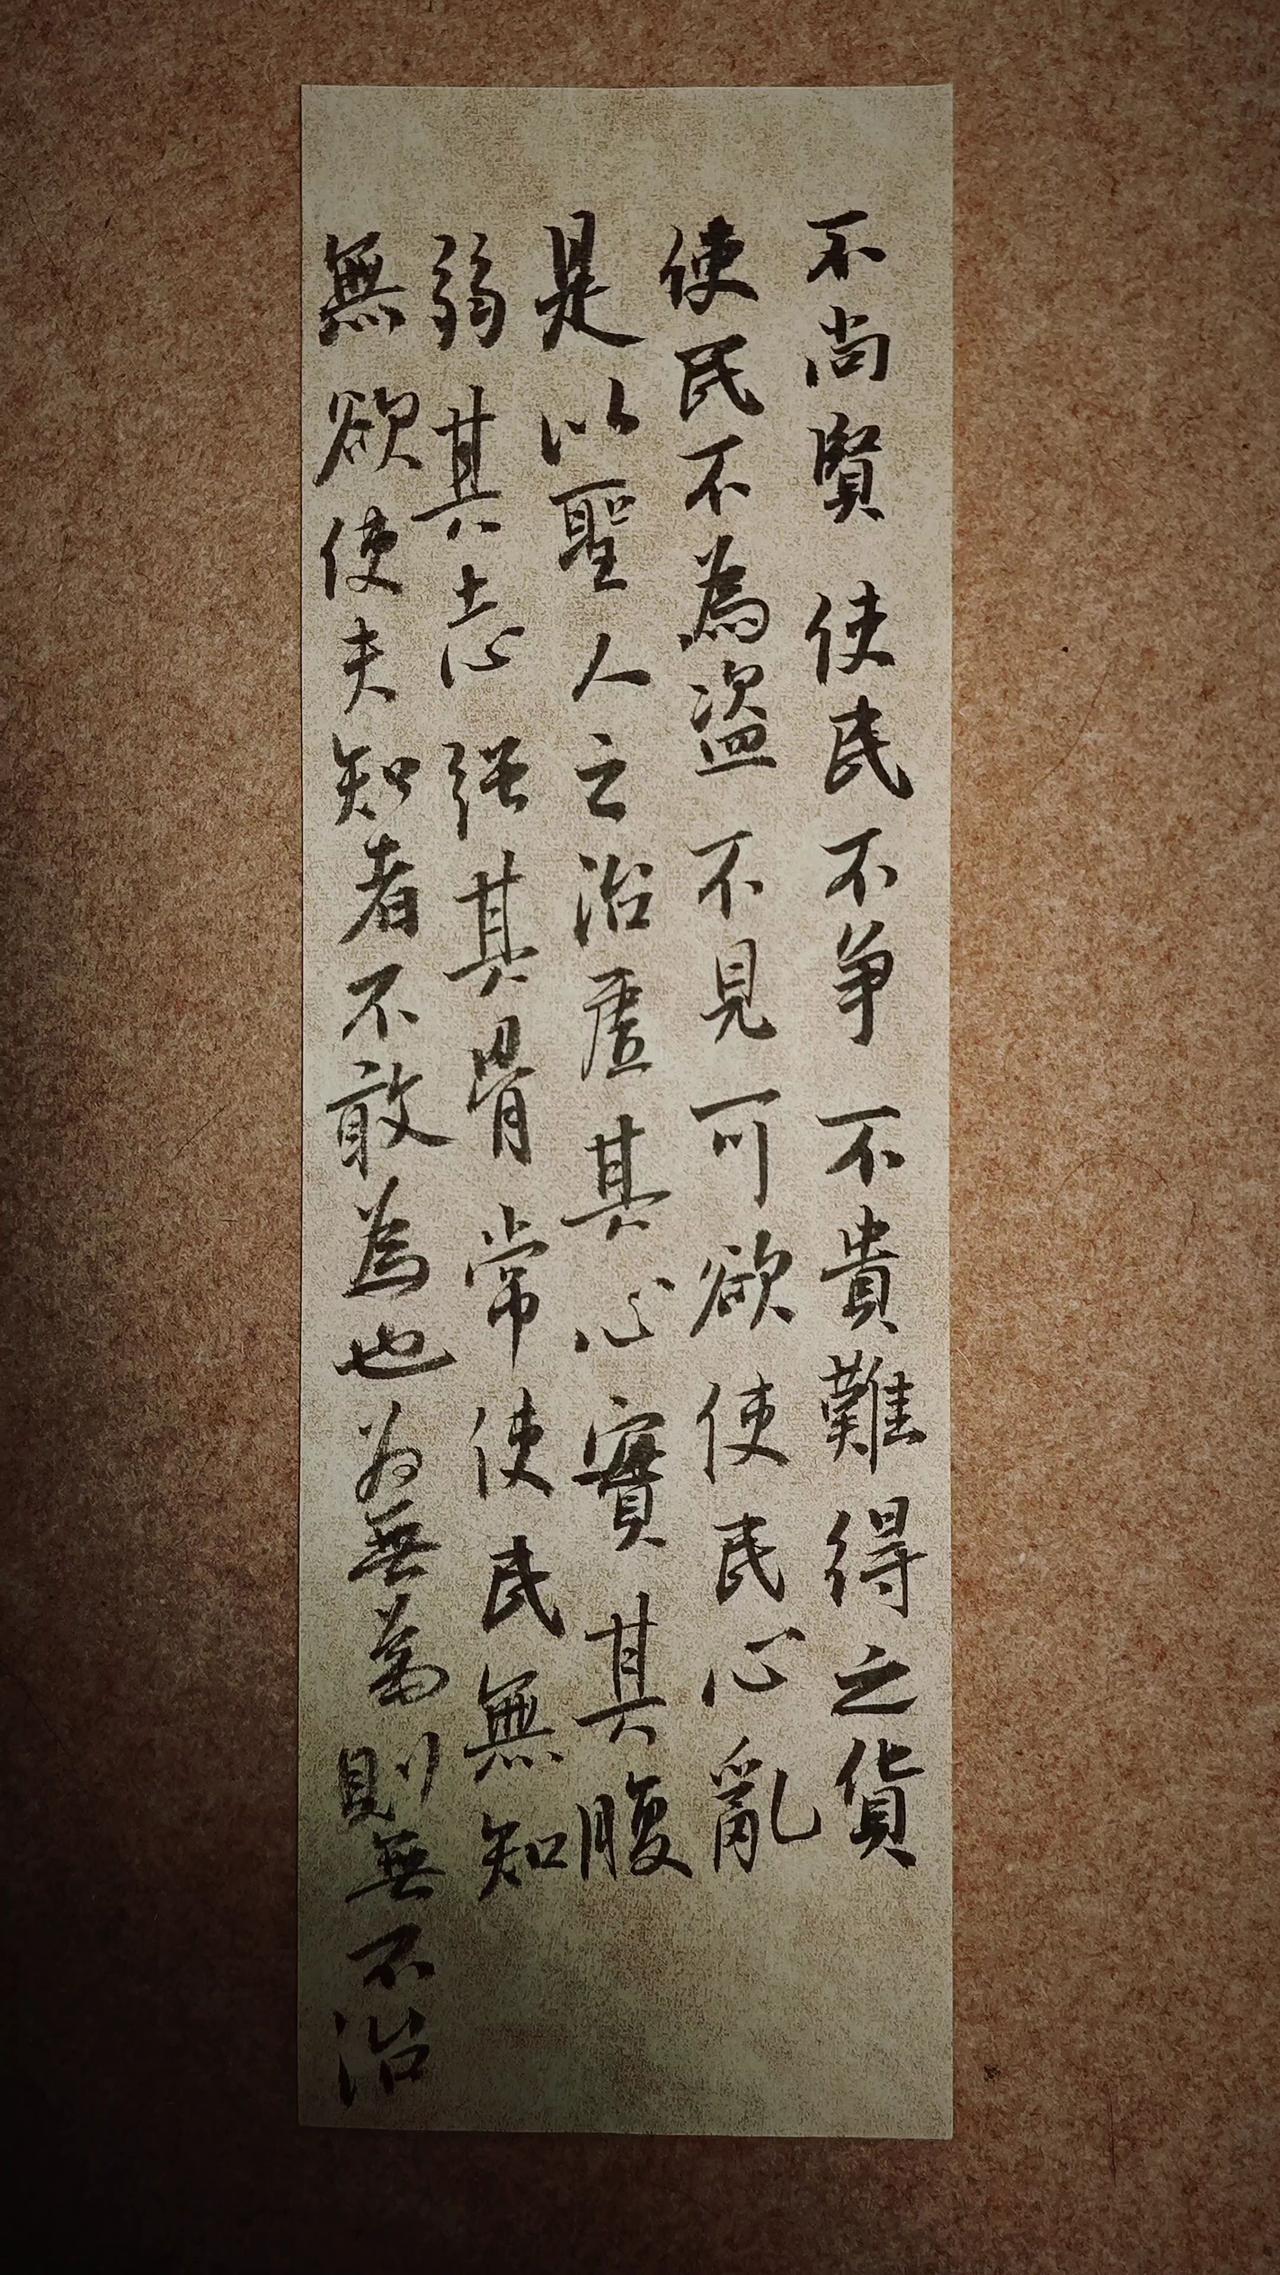 不尚賢使民不爭不貴難得之貨
使民不為盜不見可欲使民心亂
是以聖人之治虛其心實其腹
弱其志强其骨常使民無知
無欲使夫知者不敢為也為無為則無不治